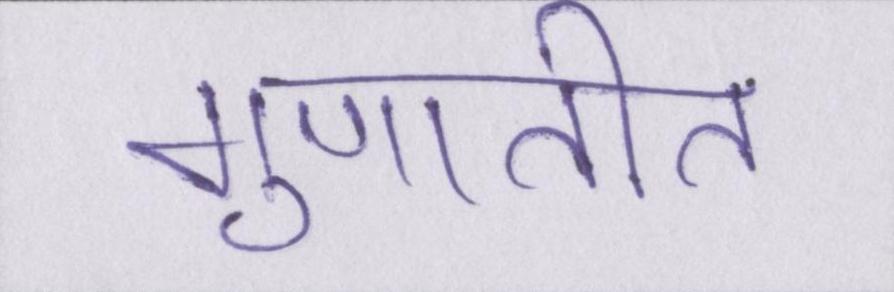 गुणातीत